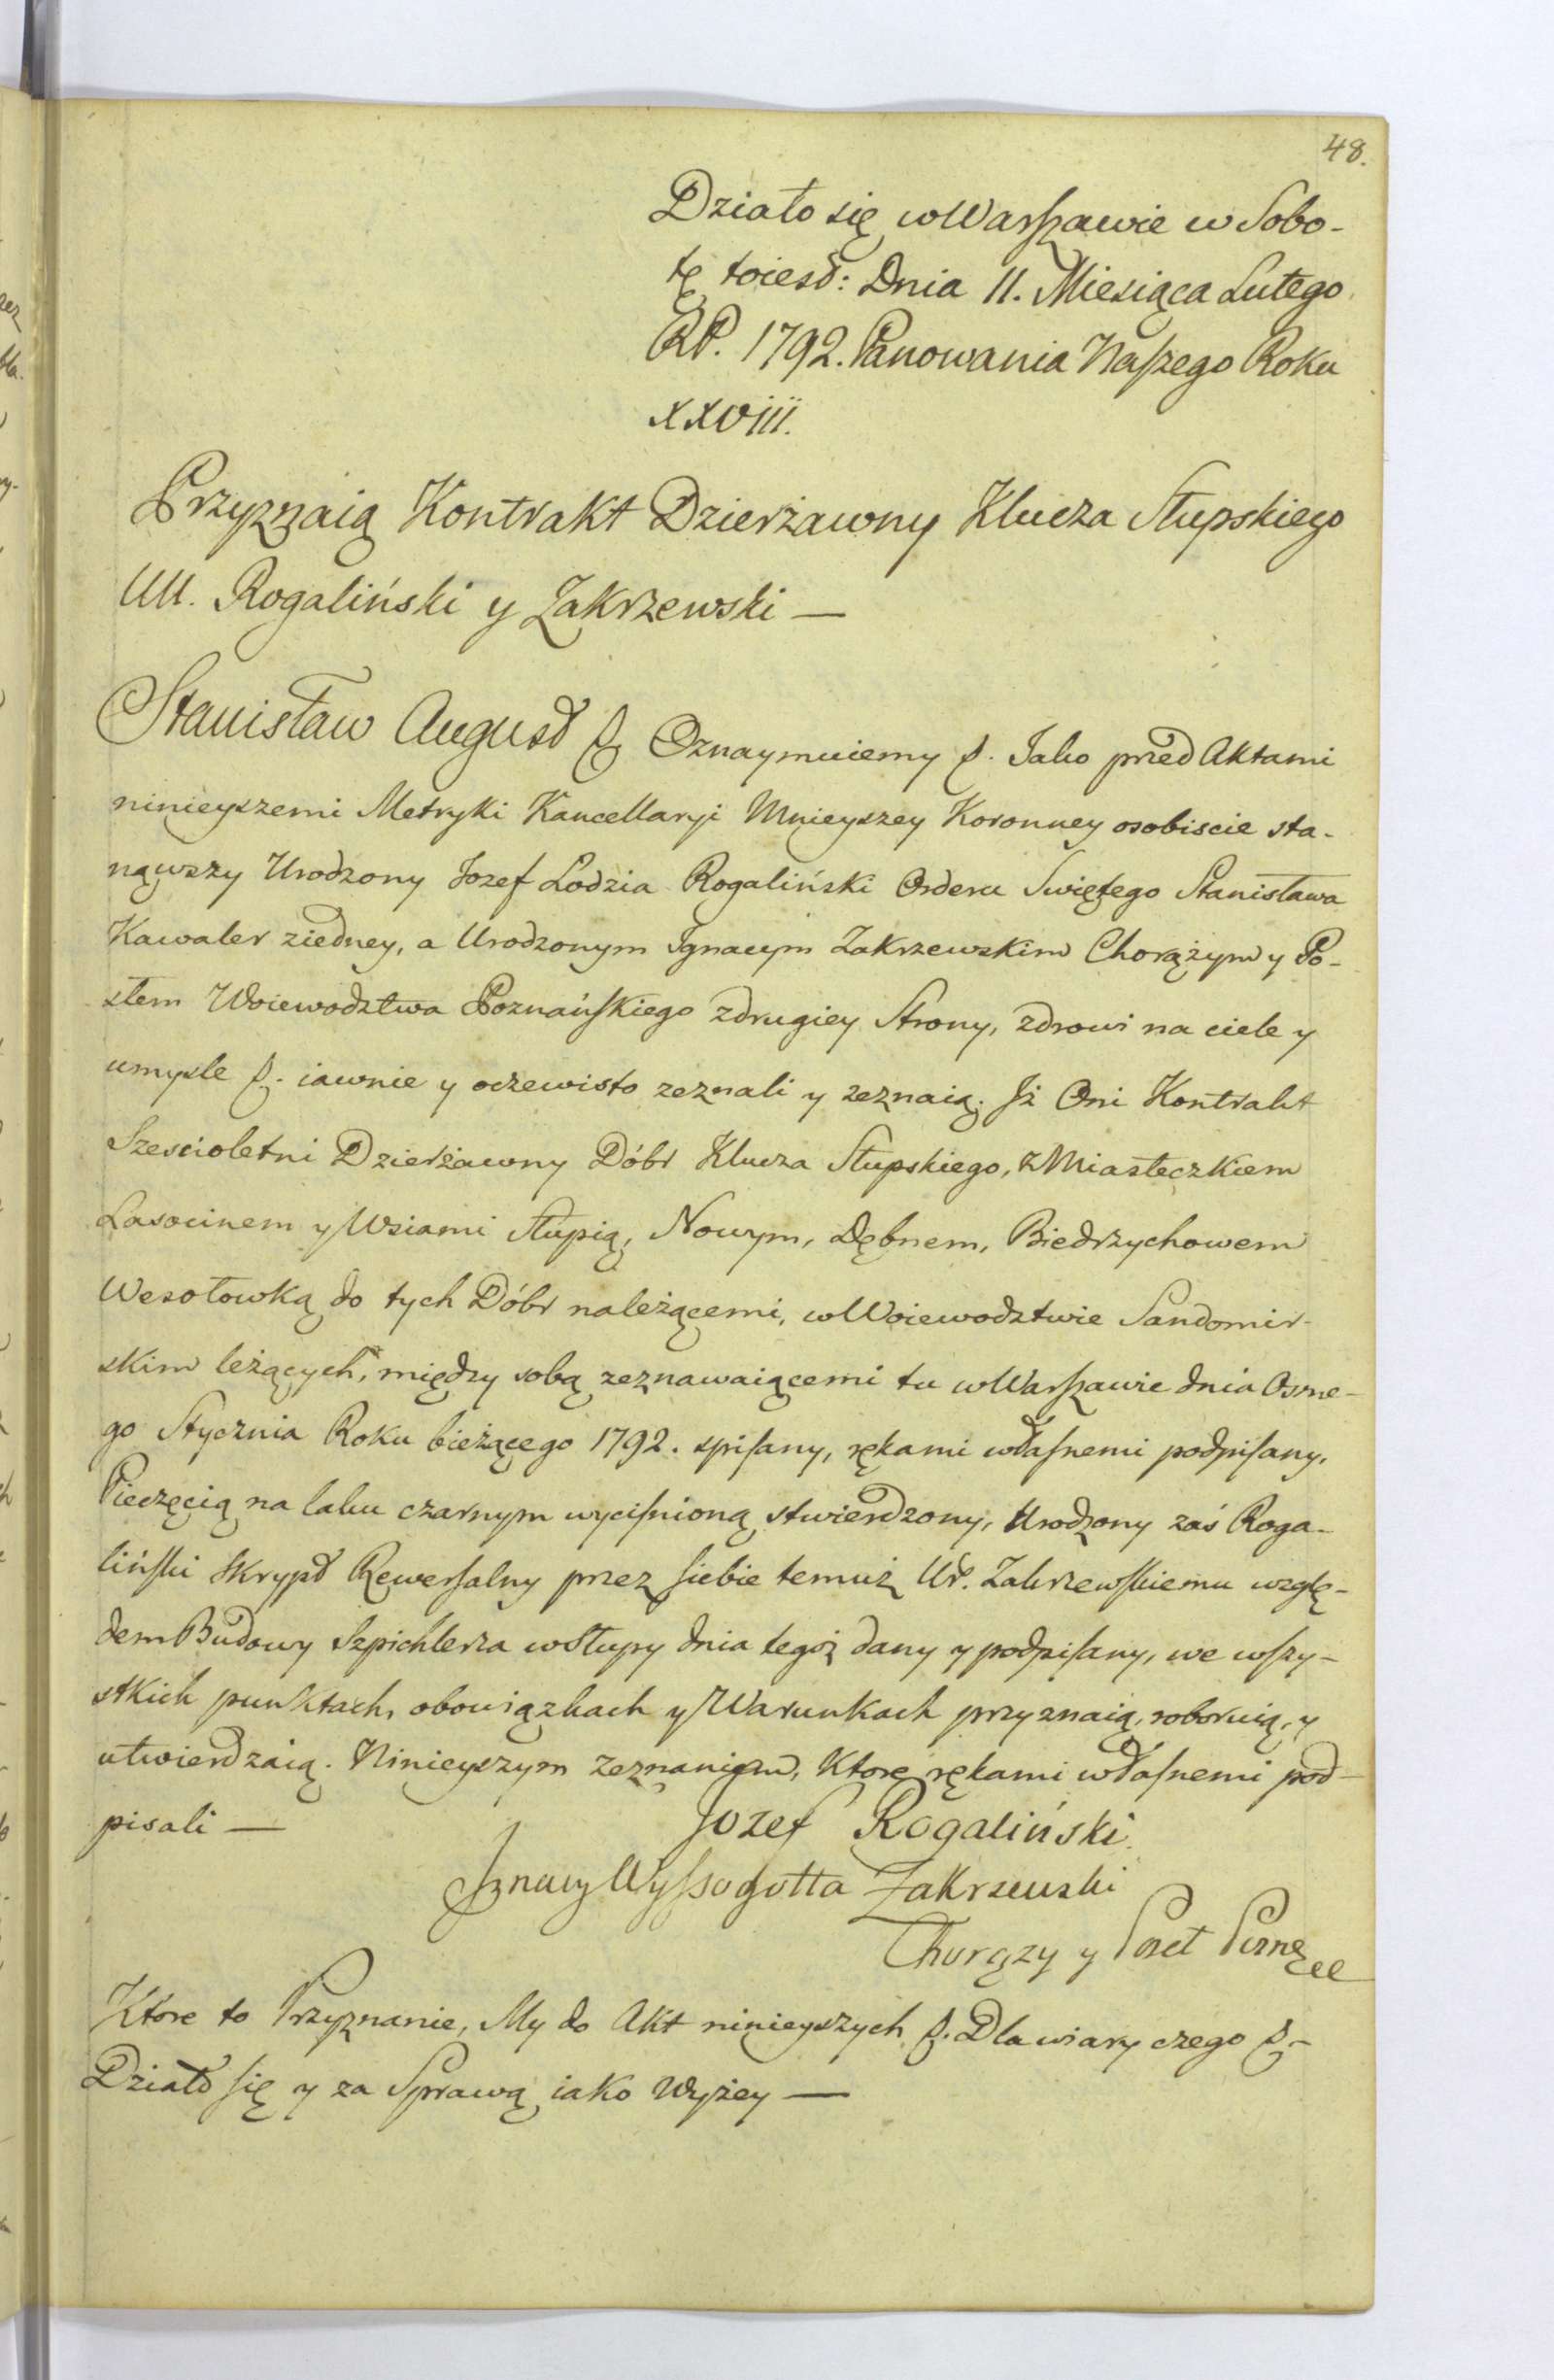 48.
Działo się w Warszawie w Sobo-
tę toiest: Dnia 11. Miesiąca Lutego
RP. 1792. Panowania Naszego Roku
XXVIII.
Przyznaią Kontrakt Dzierżawny Klucza Słupskiego
UU. Rogaliński y Zakrzewski —
Stanisław August &. Oznaymuiemy &. Jako przed Aktami
ninieyszemi Metryki Kancellaryi Mnieyszey Koronney osobiscie sta-
nąwszy Urodzony Jozef Lodzia Rogaliński Orderu Swiętego Stanisława
Kawaler ziedney, a Urodzonym Ignacym Zakrzewskim Chorążym y Po-
słem Woiewodztwa Poznańskiego zdrugiey Strony, zdrowi na ciele y
umysle &. iawnie y oczewisto zeznali y zeznaią. Jż Oni Kontrakt
Szescioletni Dzierżawny Dóbr Klucza Słupskiego, z Miasteczkiem
Lasocinem y Wsiami Słupią, Nowym, Dębnem, Biedrzychowem
Wesołowką do tych Dóbr należącemi, w Woiewodztwie Sandomir-
skim leżących, między sobą zeznawaiącemi tu w Warszawie dnia Osme-
go Stycznia Roku bieżącego 1792. spisany, rękami własnemi podpisany,
Pieczęcią na laku czarnym wycisnioną stwierdzony, Urodzony zaś Roga-
liński Skrypt Rewersalny przez siebie temuż Ur. Zakrzewskiemu wzglę-
dem Budowy Szpichlerza w Słupy dnia tegoż dany y podpisany, we wszy-
stkich punktach, obowiązkach y Warunkach przyznaią, roboruią, y
utwierdzaią. Ninieyszym Zeznaniem, Ktore rękami własnemi pod-
pisali —
Jozef Rogaliński.
Ignacy Wyssogotta Zakrzewski
Chorązy y Poseł
Ktore to Przyznanie, My do Akt ninieyszych &. Dla wiary czego &. -
Działo się y za Sprawą iako Wyżey —